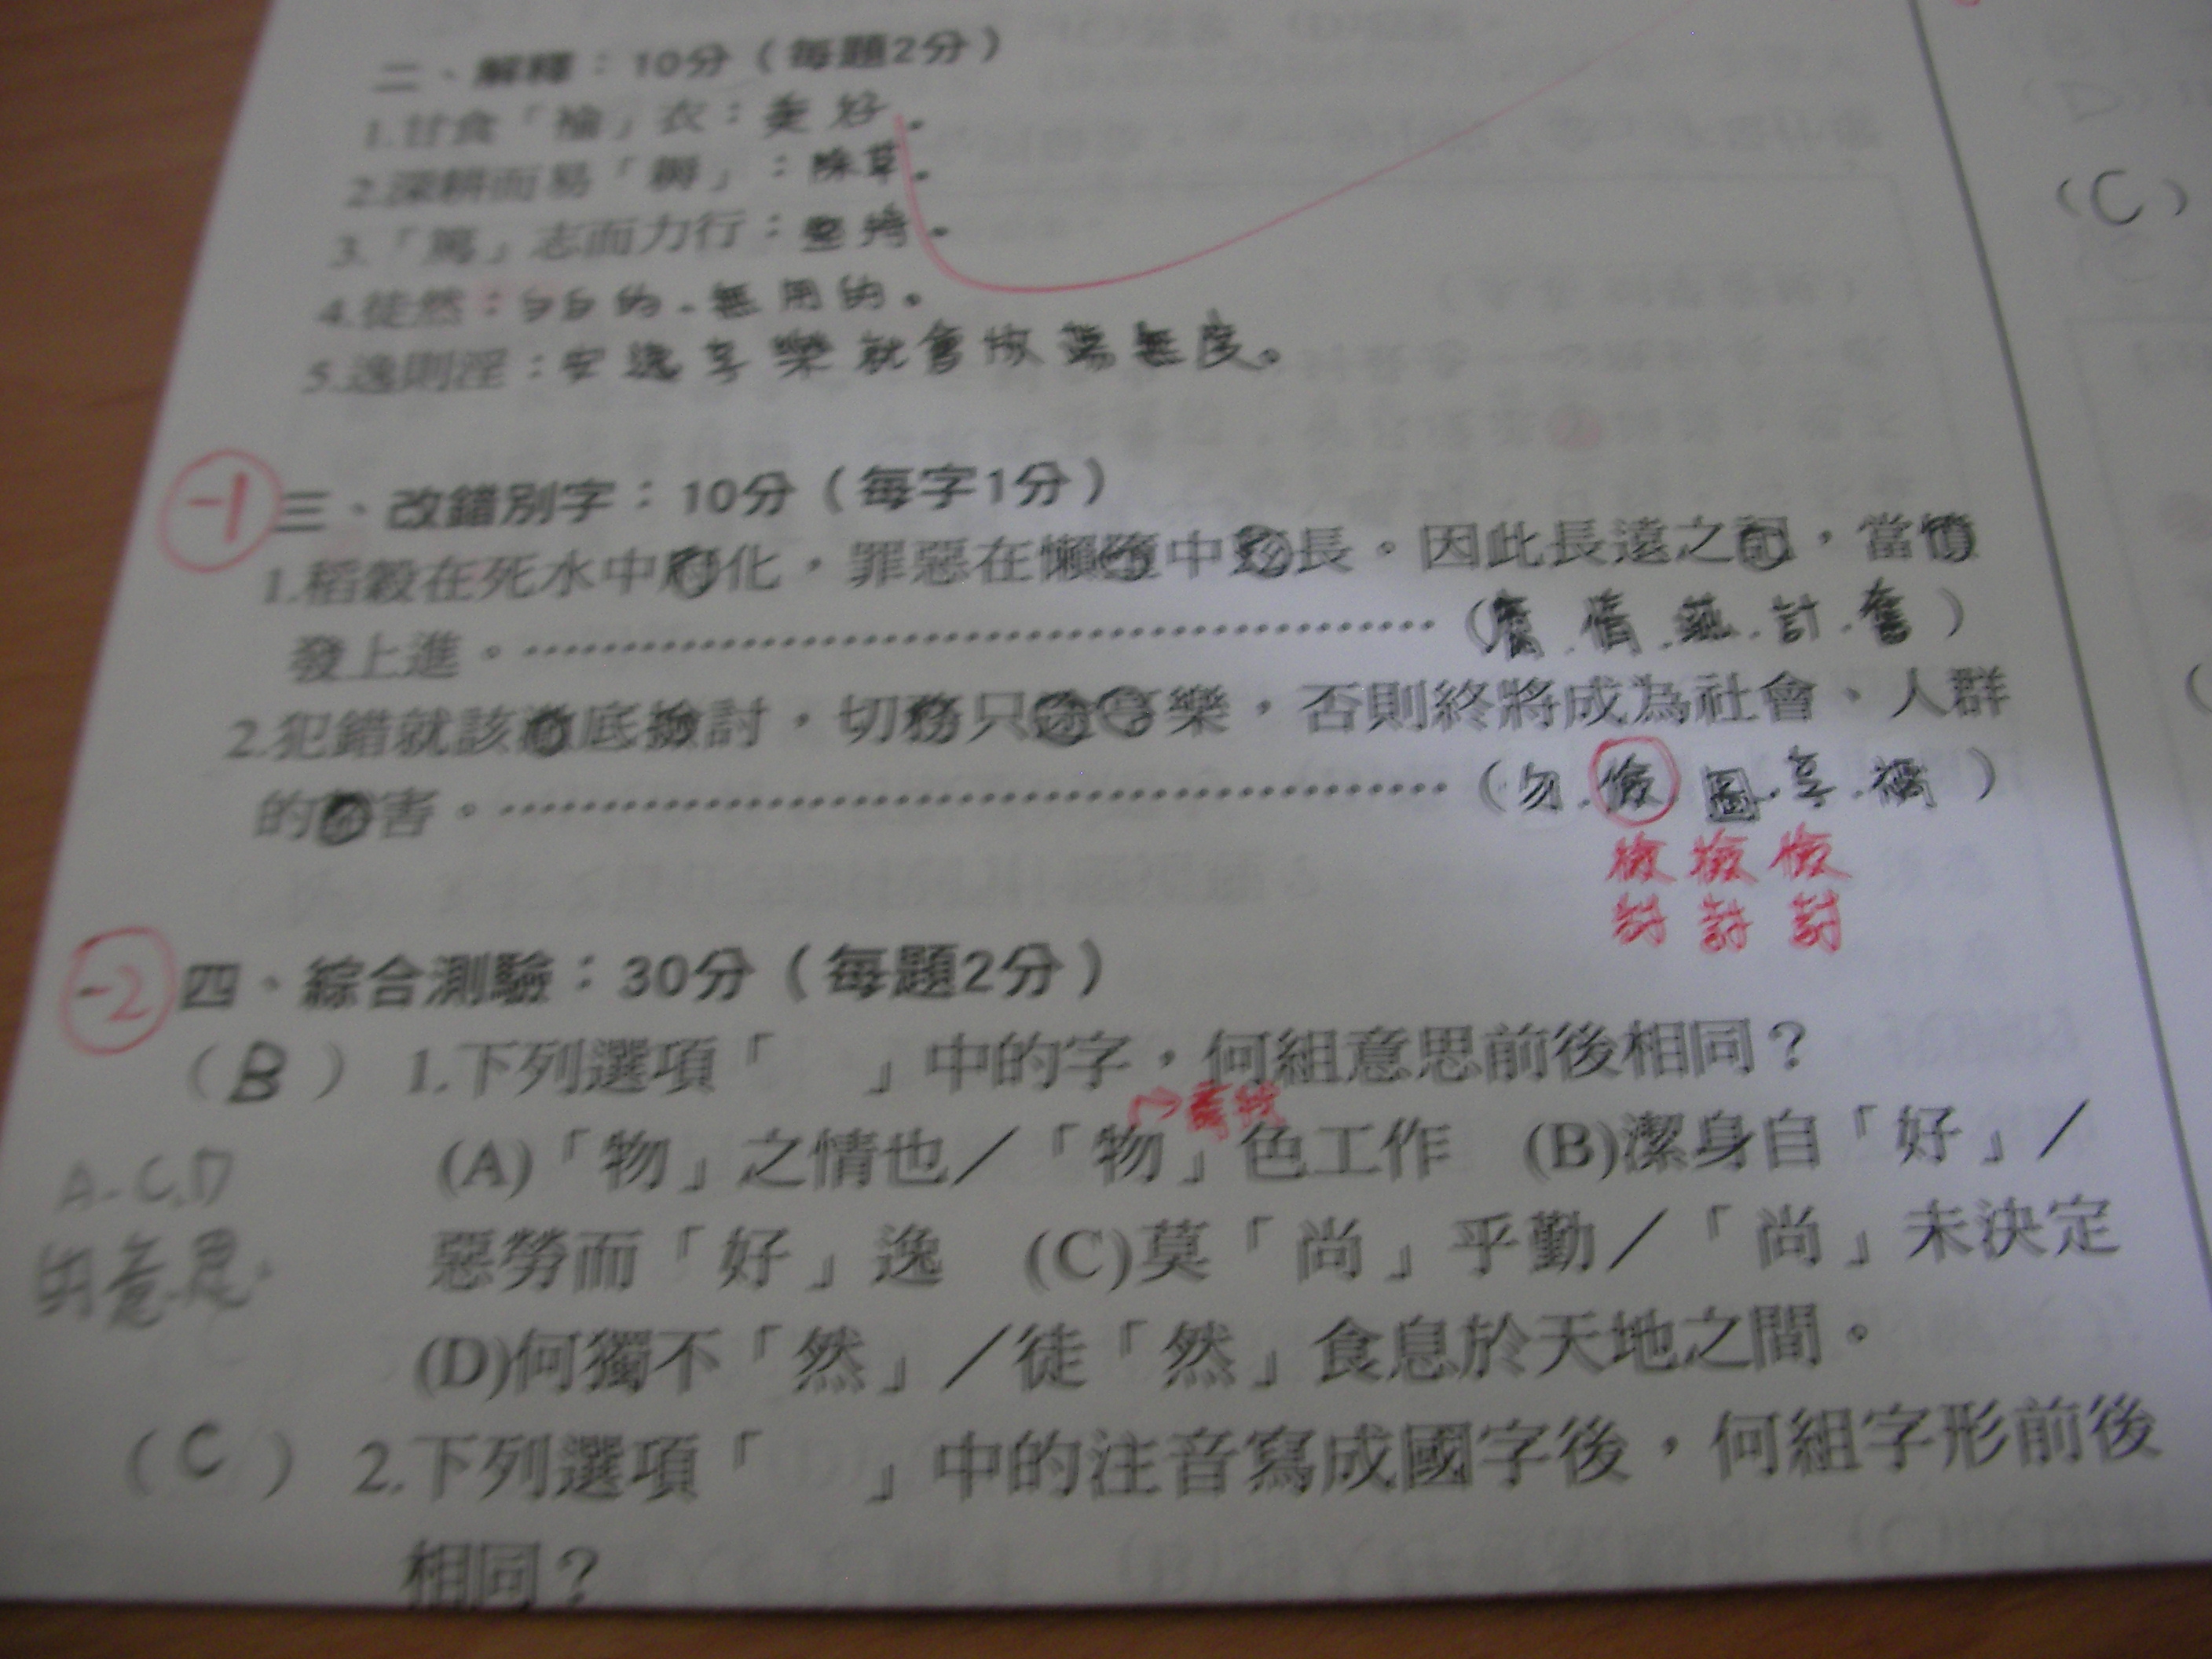 二、解釋：10分（每題2分）
1.甘食「褕」衣：美好。
2.深耕而易「耨」：除草。
3.「篤」志而力行：堅持。
4.徒然：白白的、無用的。
5.逸則淫：安逸享樂就會放蕩無度。
-1
三、改錯別字：10分（每字1分）
1.稻穀在死水中化，罪惡在懶中長。因此長遠之，當憤
發上進。（腐.惰.蘊.計.奮）
2.犯錯就該底撿討，切務只樂，否則終將成為社會、人群
的害。（勿.儉.圖.享.禍）
檢 檢 檢
討 討 討
-2
四、綜合測驗：30分（每題2分）
（B）1.下列選項「　」中的字，何組意思前後相同？
→尋找
(A)「物」之情也／「物」色工作 (B)潔身自「好」／
A.C.D
惡勞而「好」逸 (C)莫「尚」乎勤／「尚」未決定
的意思.
(D)何獨不「然」／徒「然」食息於天地之間。
（C）2.下列選項「　」中的注音寫成國字後，何組字形前後
相同？
（C）